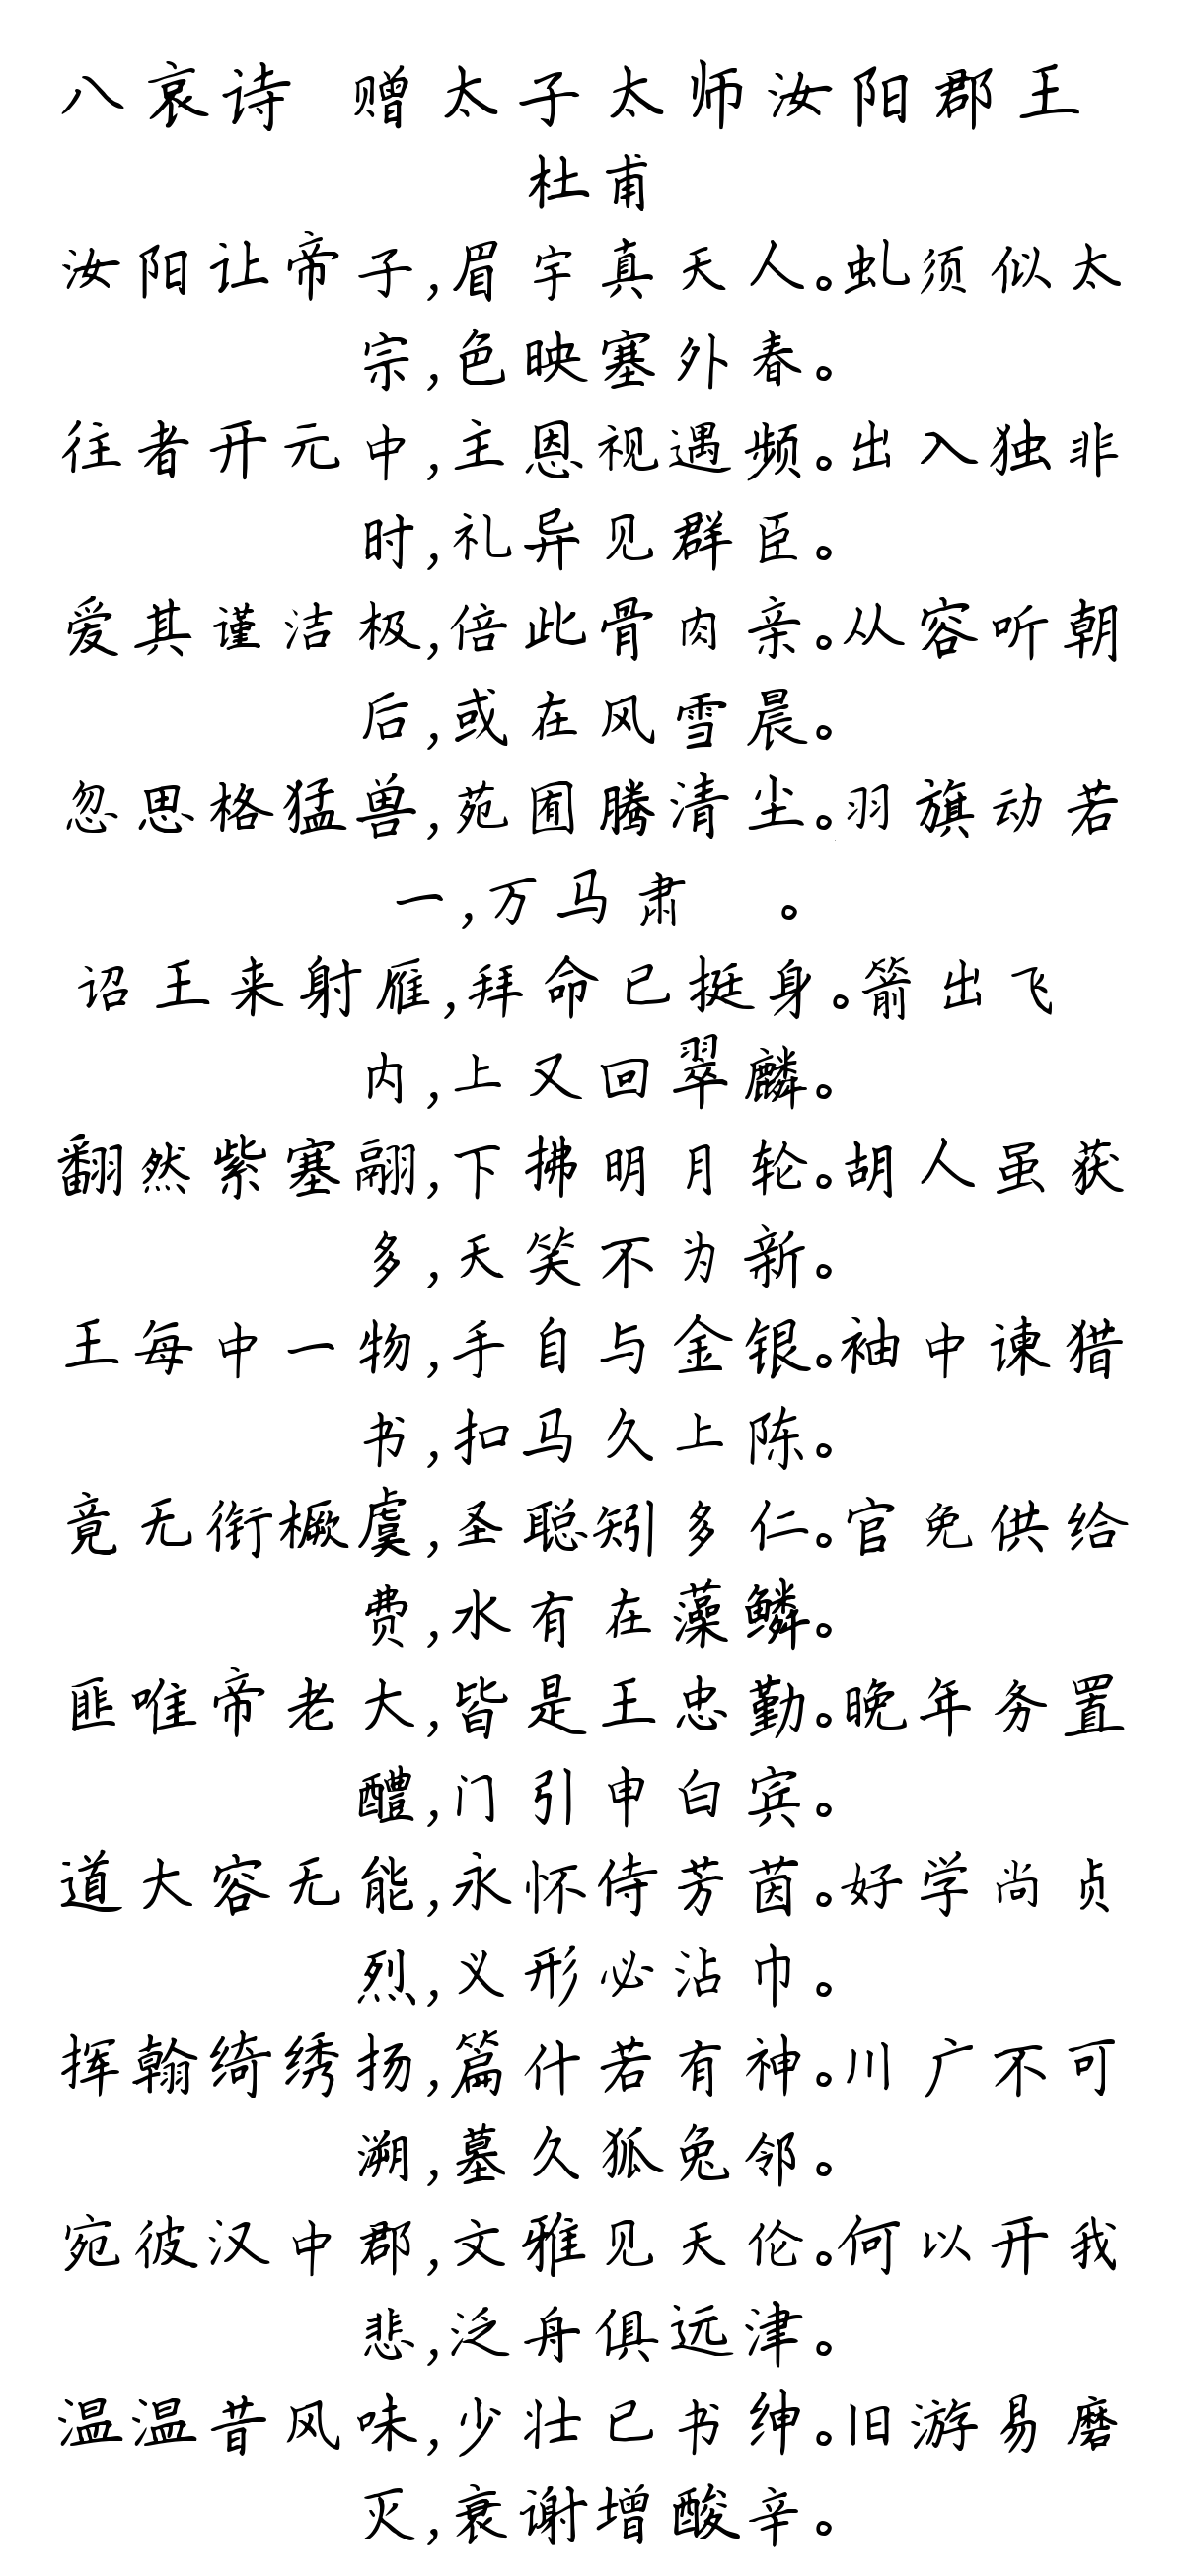 八哀诗 赠太子太师汝阳郡王
杜甫
汝阳让帝子,眉宇真天人。虬须似太
宗,色映塞外春。
往者开元中,主恩视遇频。出入独非
时,礼异见群臣。
爱其谨洁极,倍此骨肉亲。从容听朝
后,或在风雪晨。
忽思格猛兽,苑囿腾清尘。羽旗动若
一,万马肃 。
诏王来射雁,拜命已挺身。箭出飞
内,上又回翠麟。
翻然紫塞翮,下拂明月轮。胡人虽获
多,天笑不为新。
王每中一物,手自与金银。袖中谏猎
书,扣马久上陈。
竟无衔橛虞,圣聪矧多仁。官免供给
费,水有在藻鳞。
匪唯帝老大,皆是王忠勤。晚年务置
醴,门引申白宾。
道大容无能,永怀侍芳茵。好学尚贞
烈,义形必沾巾。
挥翰绮绣扬,篇什若有神。川广不可
溯,墓久狐兔邻。
宛彼汉中郡,文雅见天伦。何以开我
悲,泛舟俱远津。
温温昔风味,少壮已书绅。旧游易磨
灭,衰谢增酸辛。